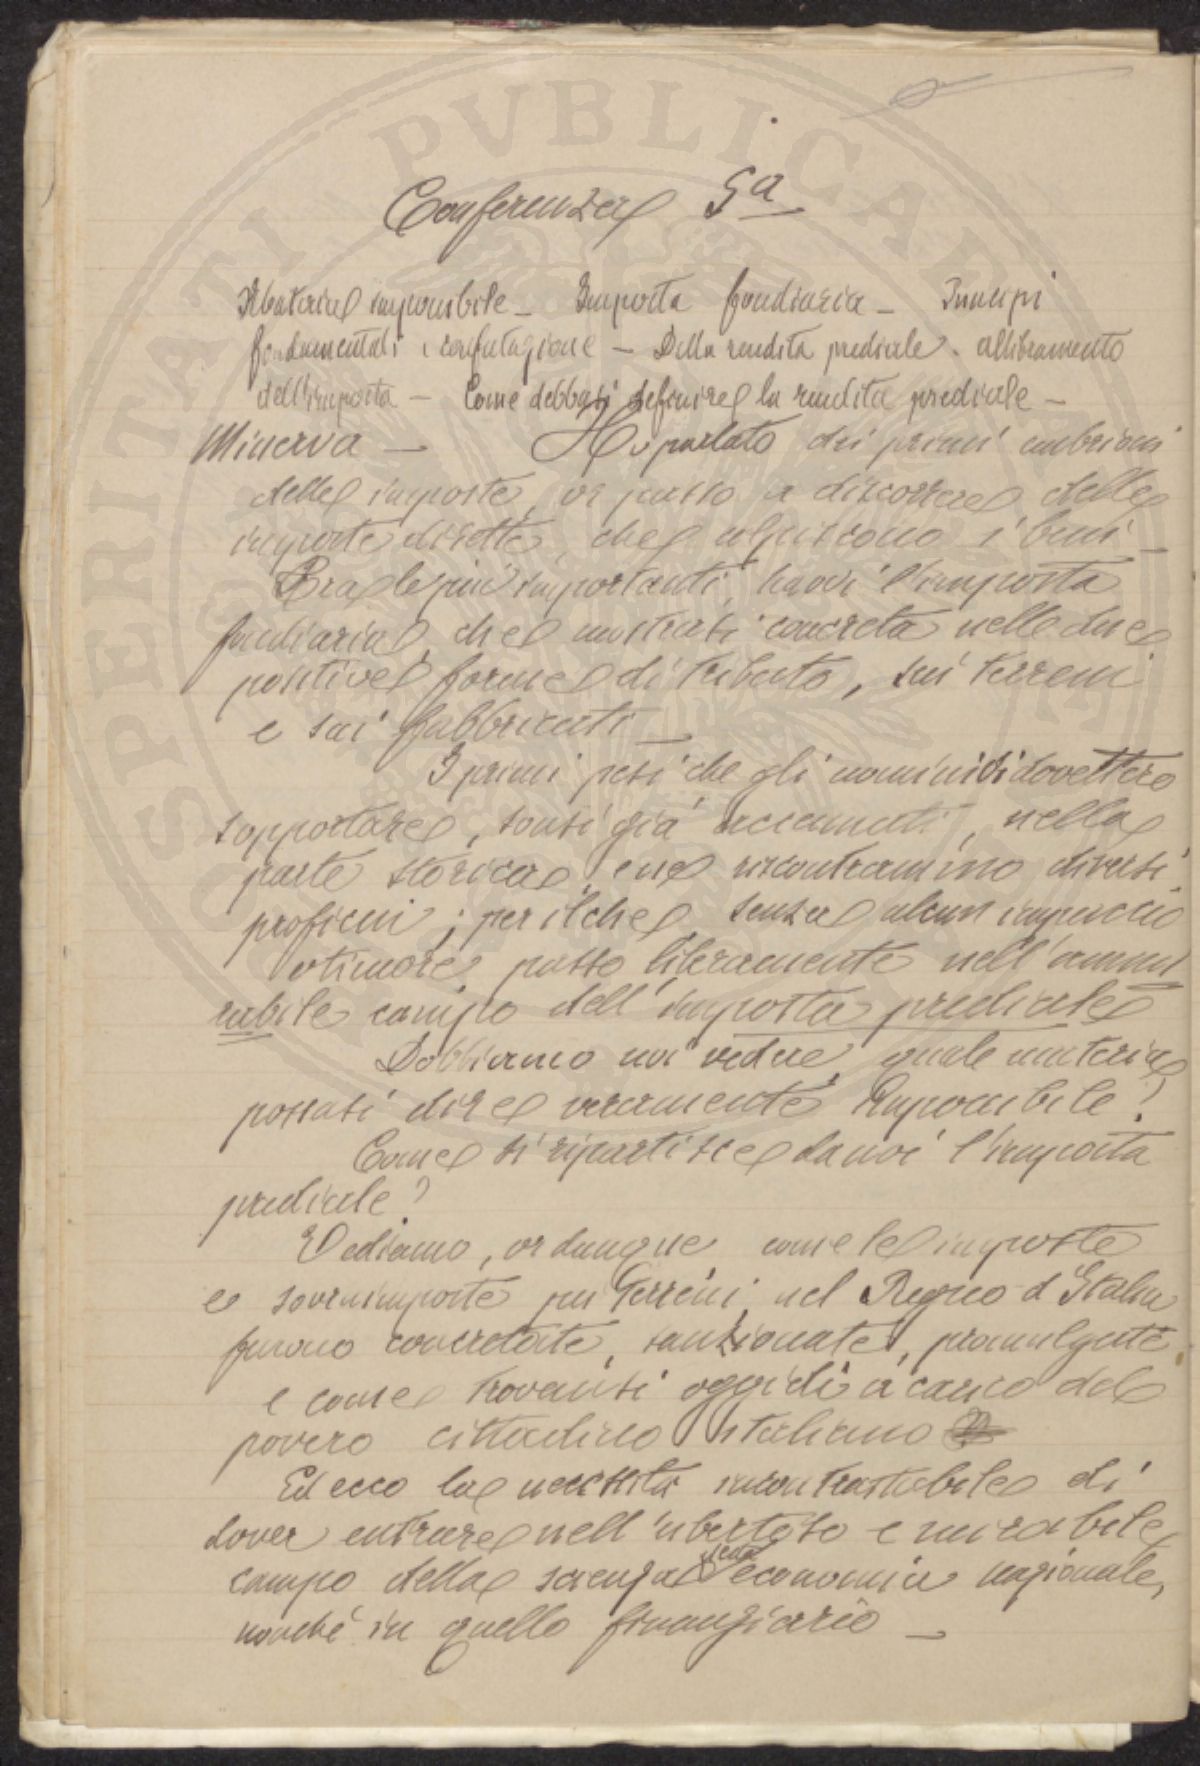 Conferenza 5a
Materia imponibile - Imposta fondiaria - Principi
fondamentali e confutazione - Della rendita prediale. allibramento
dell'imposta - Come debbasi definire la rendita prediale -
Minerva - Ho parlato dei primi embrioni
delle imposte, or passo a discorrere delle
imposte dirette, che colpiscono i beni -
Fra le più importanti, havvi l'imposta
fondiaria, che mostrasi concreta nelle due
positive forme di tributo, sui terreni
e sui fabbricati -
I primi pesi che gli uomini dovettero
sopportare, sonsi già accennati, nella
parte storica, e ne riscontrammo diversi
proficui; per il che, senza alcun impaccio
o timore, passo liberamente nell'ammi
rabile campo dell'imposta prediale
Dobbiamo noi vedere, quale materia
possasi dire veramente Imponibile?
Come si ripartisce da noi l'imposta
prediale?
Vediamo, or dunque come le imposte
e sovraimposte pei Terreni nel Regno d'Italia
furono concretate, sanzionate, promulgate
e come trovansi oggidì a carico del
povero cittadino italiano
Ed ecco la necessità incontrastabile di
dover entrare nell'ubertoso e mirabile
campo della scienza della economia nazionale,
nonché in quello finanziario -
SPERITATI PVBLICAE